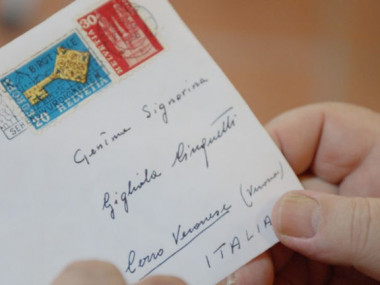 30
HELVETIA
HELVETIA
Gen.ma Signorina
Gigliola Cinquetti
Cerro Veronese (Verona)
ITALIA